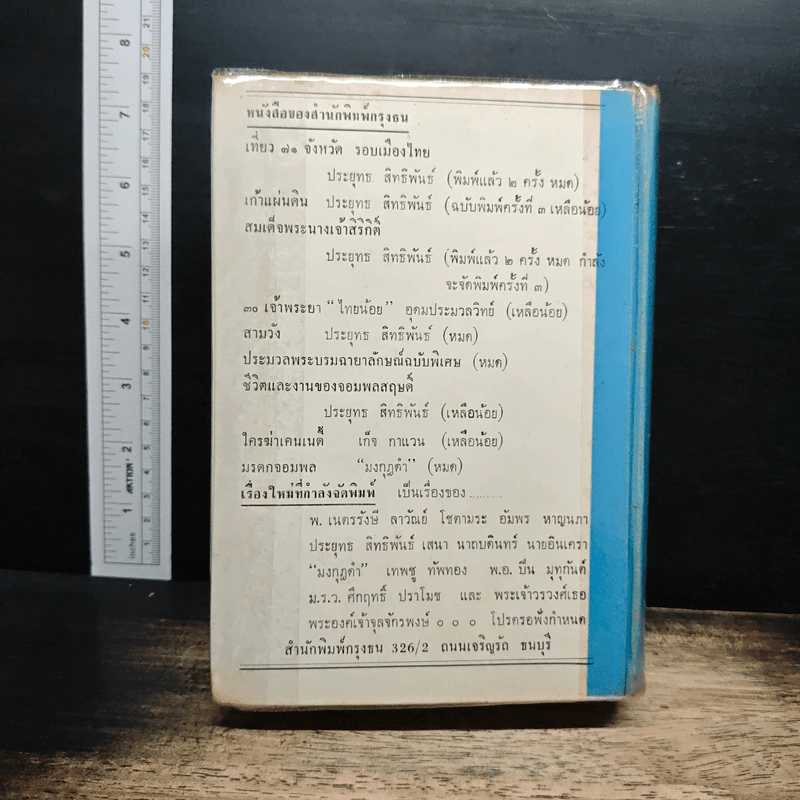 หนังสือของสำนักพิมพ์กรุงธน
เที่ยว ๗๑ จังหวัด รอบเมืองไทย
ประยุทธ สิทธิพันธ์ (พิมพ์แล้ว ๒ ครั้ง หมด)
เก้าแผ่นดิน ประยุทธ สิทธิพันธ์ (ฉบับพิมพ์ครั้งที่ ๓ เหลือน้อย)
สมเด็จพระนางเจ้าสิริกิติ์
ประยุทธ สิทธิพันธ์ (พิมพ์แล้ว ๒ ครั้ง หมด กำลัง
จะจัดพิมพ์ครั้งที่ ๓)
๓๐ เจ้าพระยา “ไทยน้อย” อุดมประมวลวิทย์ (เหลือน้อย)
สามวัง ประยุทธ สิทธิพันธ์ (หมด)
ประมวลพระบรมฉายาลักษณ์ฉบับพิเศษ (หมด)
ชีวิตและงานของจอมพลสฤษดิ์
ประยุทธ สิทธิพันธ์ (เหลือน้อย)
ใครฆ่าเคนเนดี้ เก็จ กาแวน (เหลือน้อย)
มรดกจอมพล “มงกุฎดำ” (หมด)
เรื่องใหม่ที่กำลังจัดพิมพ์ เป็นเรื่องของ ..........
พ. เนตรรังษี ลาวัณย์ โชตามระ อัมพร หาญนภา
ประยุทธ สิทธิพันธ์ เสนา นาถบดินทร์ นายอินเครา
“มงกุฎดำ” เทพชู ทับทอง พ.อ. ปิ่น มุทุกันต์
ม.ร.ว. ศึกฤทธิ์ ปราโมช และ พระเจ้าวรวงศ์เธอ
พระองค์เจ้าจุลจักรพงษ์ ๐ ๐ ๐ โปรดรอฟังกำหนด
สำนักพิมพ์กรุงธน 326/2 ถนนเจริญรัถ ธนบุรี
8 7 6 5 4 3 2 1
21 20 19 18 17 16 15 14 13 12 11 10 9 8 7 6 5 4 3 2 1
AKTION
inches